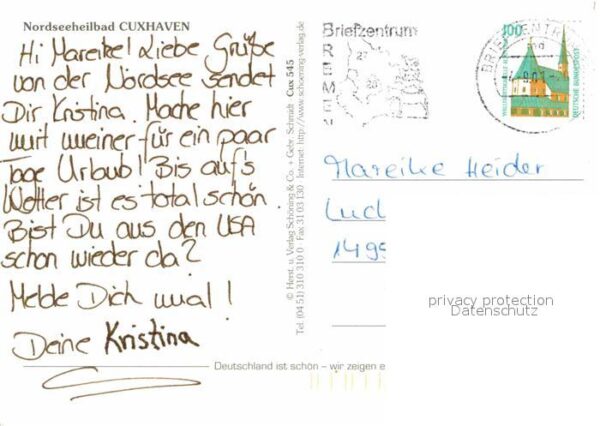 Nordseeheilbad CUXHAVEN
Hi Mareike! Liebe Grüße
von der Nordsee sendet
Dir Kristina. Mache hier
mit meiner für ein paar
Tage Urlaub! Bis auf's
Wetter ist es total schön.
Bist Du aus den USA
schon wieder da?
Melde Dich mal!
Deine Kristina
© Herst. u. Verlag Schöning & Co. + Gebr. Schmidt Cux 545
Tel. (04 51) 310 310 0 · Fax 31 03 130 · Internet: http://www.schoening-verlag.de
Deutschland ist schön – wir zeigen e
Briefzentrum
BREMEN
27
28
BRIEFZENTRUM
100
DEUTSCHE BUNDESPOST
Mareike Heider
Lud
1495
privacy protection
Datenschutz